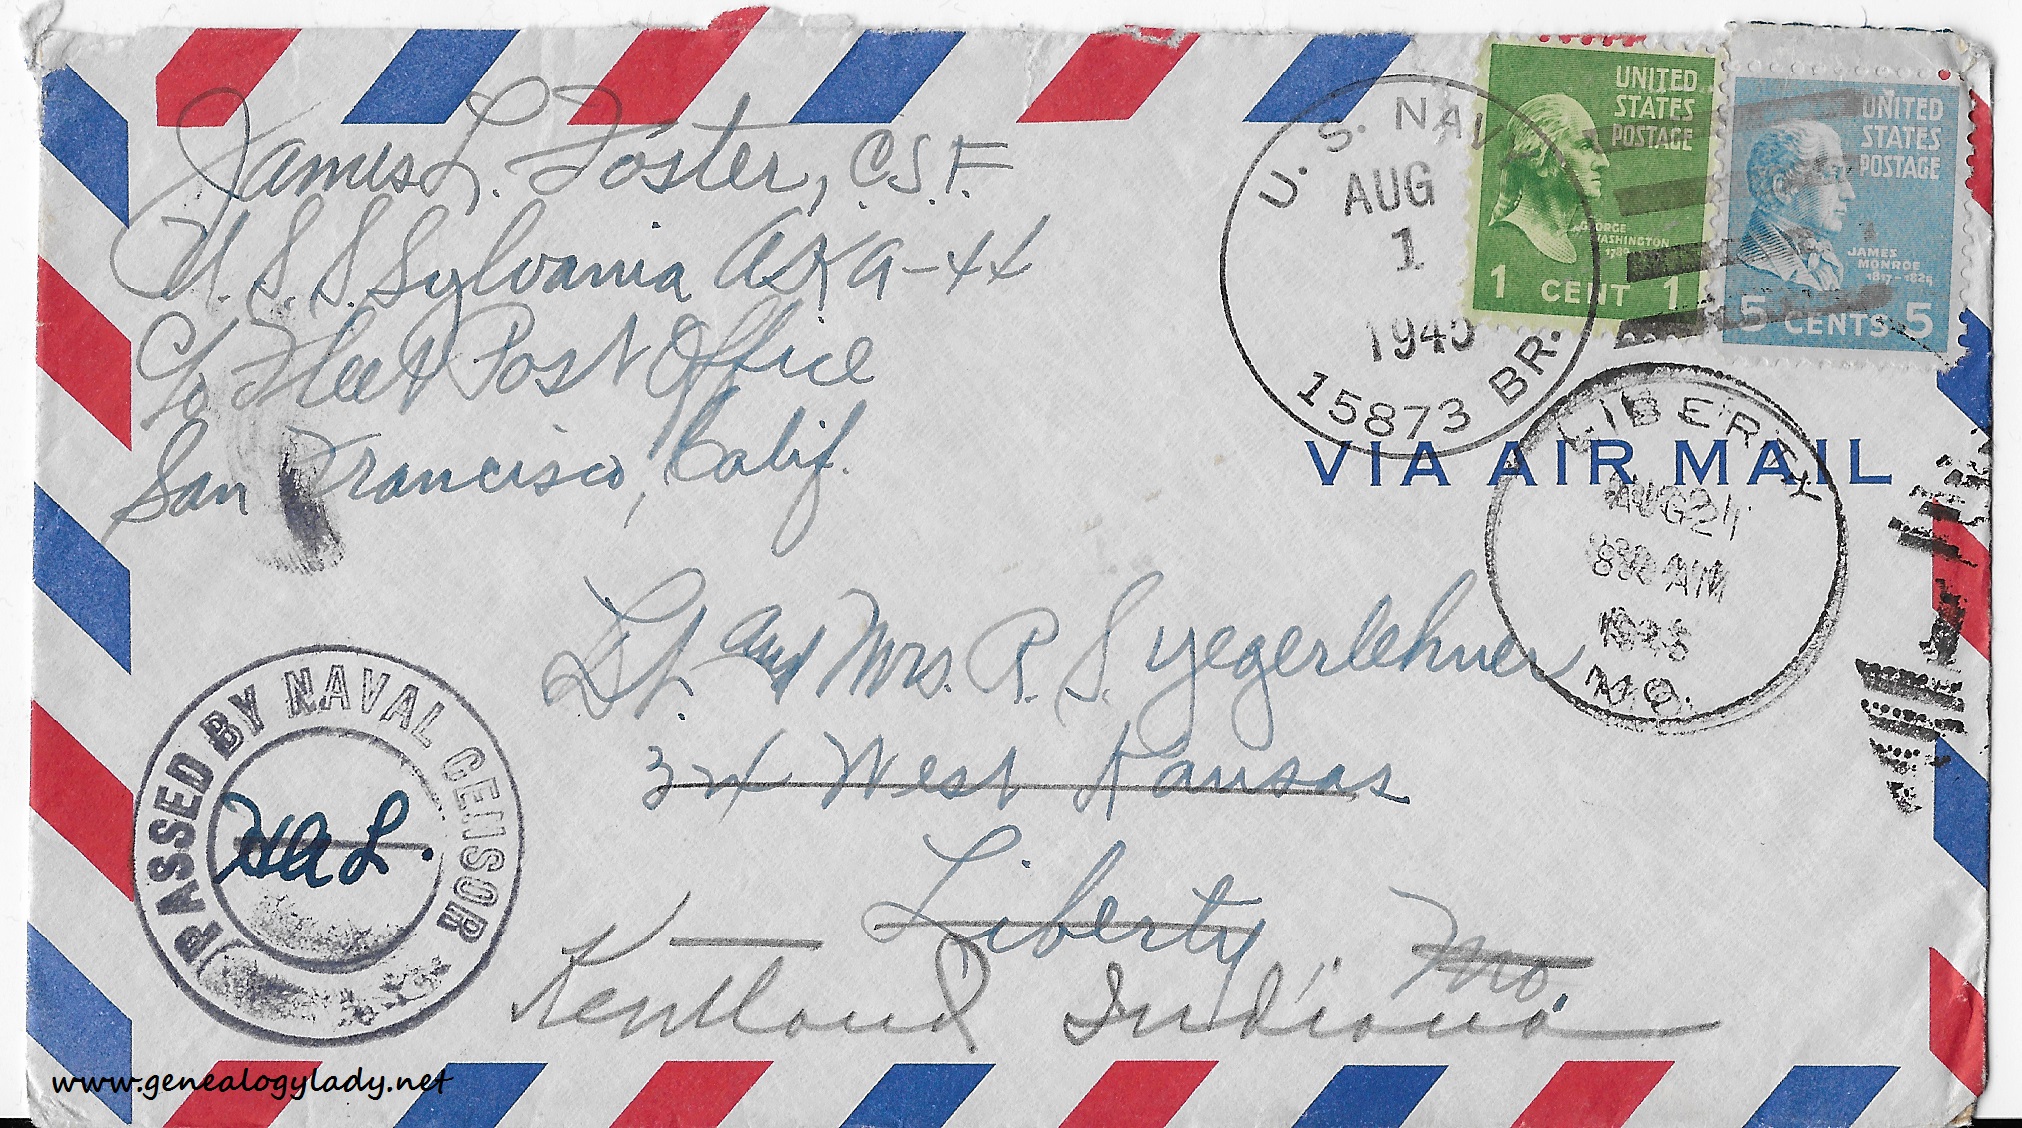 James L. Foster, C.S.F.
U.S.S. Sylvania AKA-44
c/o Fleet Post Office
San Francisco, Calif.
U. S. NAVY
AUG
1
1945
15873 BR.
UNITED
STATES
POSTAGE
GEORGE
WASHINGTON
1 CENT 1
UNITED
STATES
POSTAGE
JAMES
MONROE
1817-1825
5 CENTS 5
VIA AIR MAIL
LIBERTY
AUG 21
8 30 AM
MO.
Lt. and Mrs. R. S. Yegerlehner
324 West Kansas
Liberty
Mo.
Kentland Indiana
PASSED BY NAVAL CENSOR
www.genealogylady.net